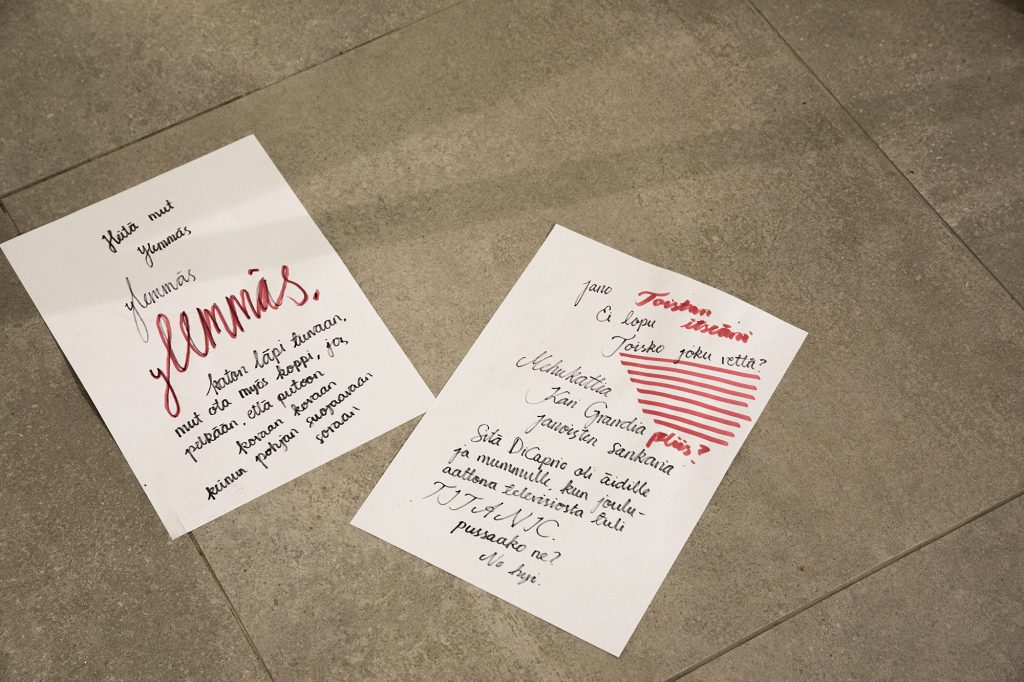 Heitä mut
ylemmäs
ylemmäs
ylemmäs.
katon läpi tuvaan,
mut ota myös koppi, jos
pelkään, että putoon
kovaan kovaan
kiinun pohjan suojaavaan
soraan
jano Toistan
Ei lopu itseäni
Toisko joku vettä?
Mehukattia
Kari Grandia pliis?
janoisten sankaria
Sitä DiCaprio oli äidille
ja mummulle, kun joulu-
aattona televisiosta tuli
TITANIC.
pussaako ne?
No hyi.